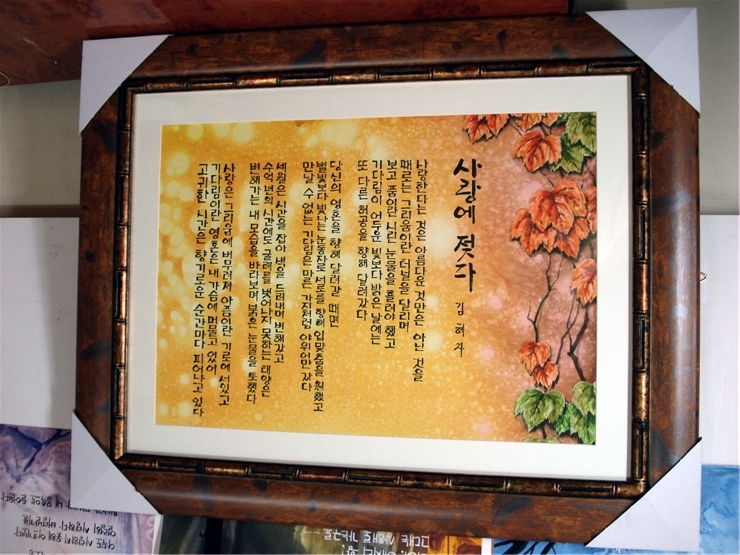 사랑에 젖다
김
사랑한다는 것은 아름다운 것만은 아닌 것을
때로는 그리움이란 터널을 달리며
보고 품이란 시린 눈물을 흘려야 했고
기다림이 어두운 빛보다 밝은 날에는
또 다른 허공을 향해 달려갔다
당신의 영혼을 향해 달려갈 때면
별빛보다 빛나는 눈동자로 서로를 향해 입맞춤을 원했고
만날 수 없는 기다림은 마른 가지처럼 야위어만 갔다
세월은 시간을 잡아 넋을 드러내며 변해갔고
수억 년의 시간에도 굴레를 벗어나지 못하는 태양은
변해가는 내 모습을 바라보며 붉은 눈물을 토했다
사랑은 그리움에 버무려져 아픔이란 기로에 서있고
기다림이란 영혼은 내 가슴에 머물고 있어
고귀한 시간은 향기로운 순간마다 피어나고 있다